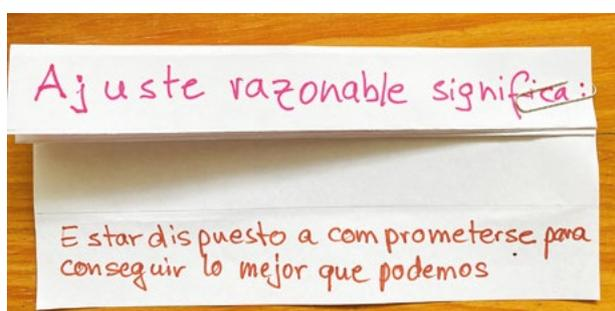 Ajuste razonable significa:
Estar dispuesto a comprometerse para
conseguir lo mejor que podemos